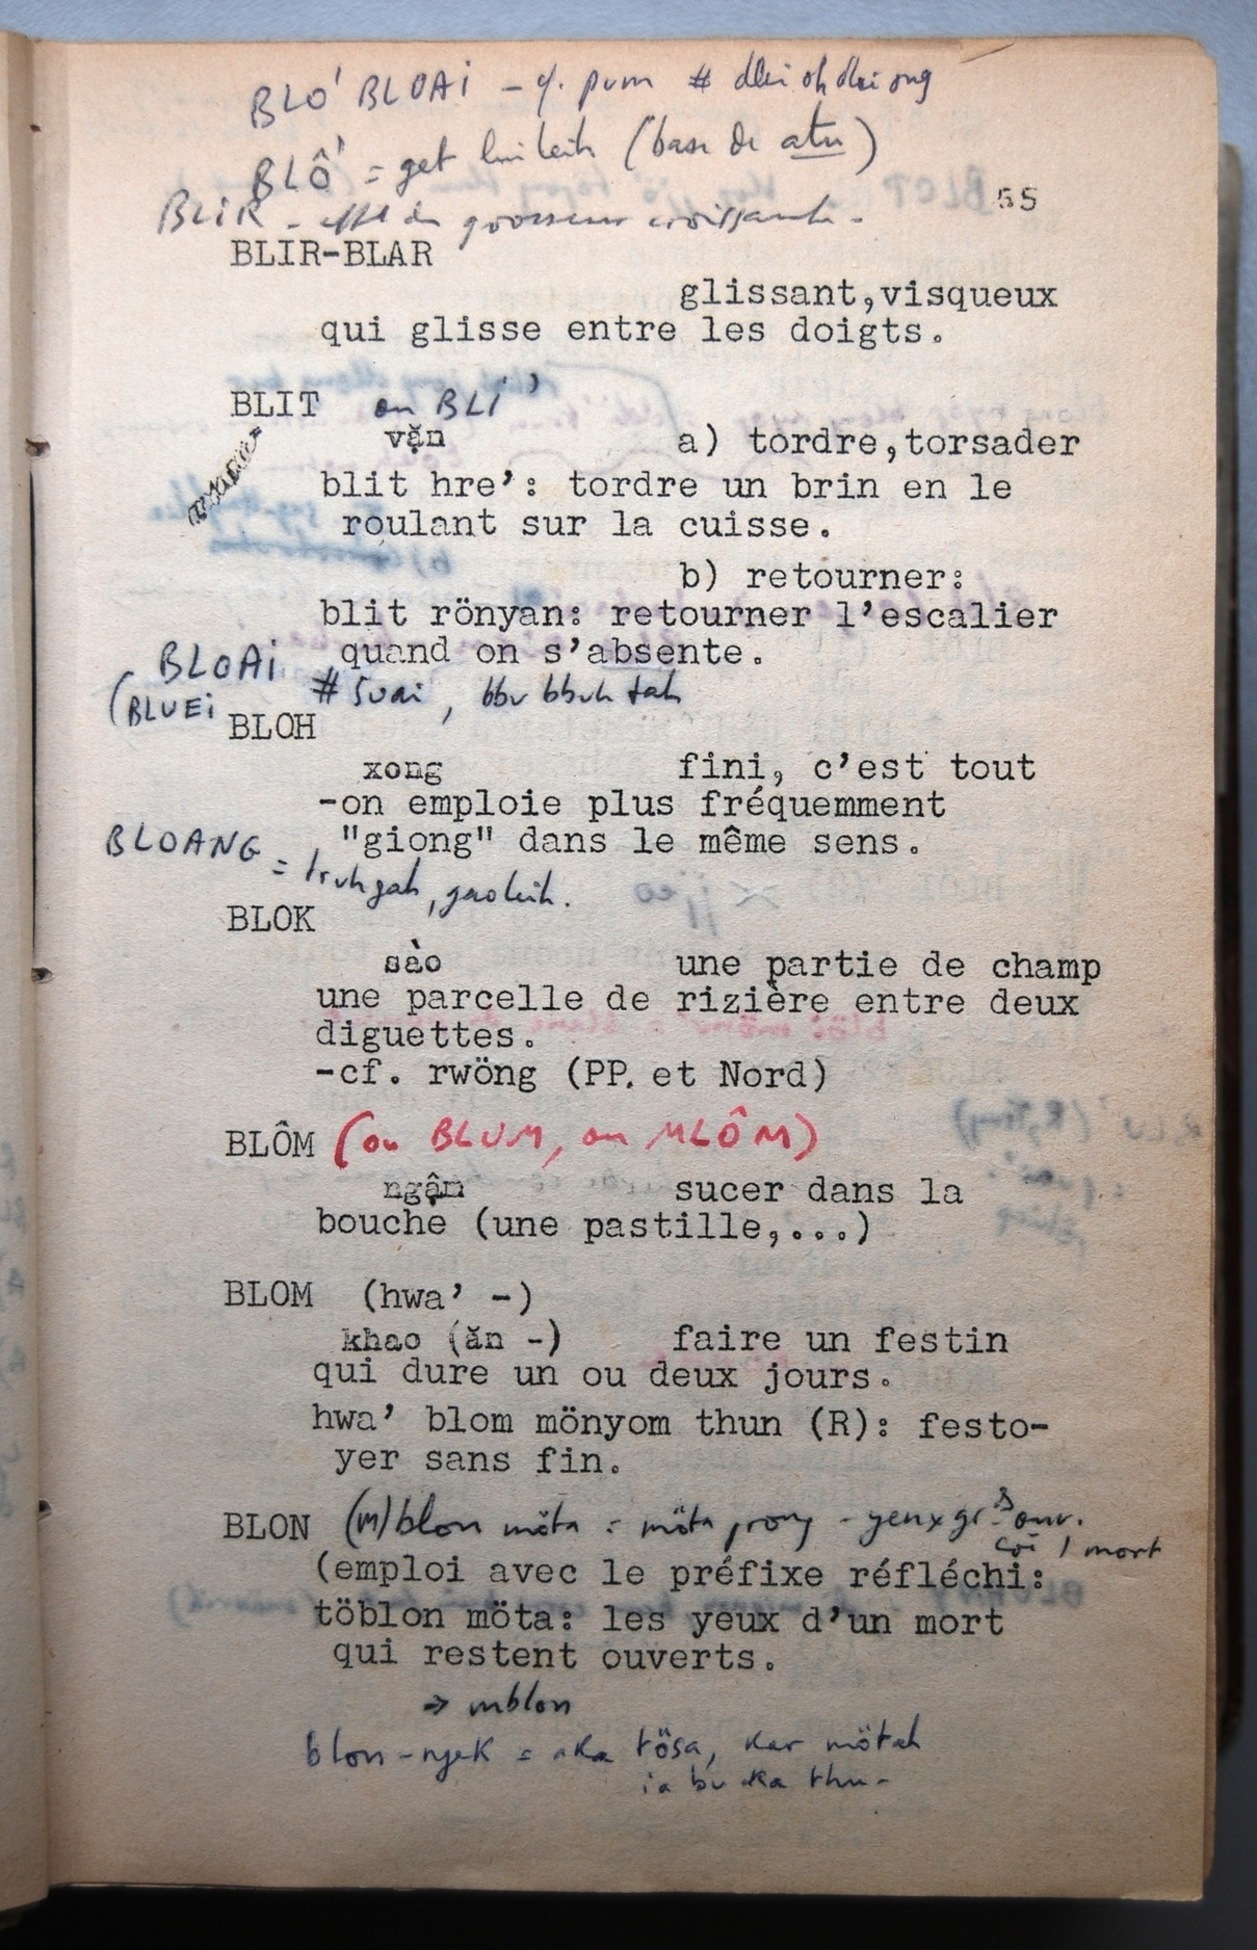 BLO' BLOAI - q. pum # dlei oh dlei ong
BLÔ' = get lui leih (base de atu)
55
BLIR - effet de grosseur croissante -
BLIR-BLAR
glissant,visqueux
qui glisse entre les doigts.
BLIT ou BLI'
vặn a) tordre,torsader
blit hre': tordre un brin en le
roulant sur la cuisse.
b) retourner:
blit rönyan: retourner l'escalier
quand on s'absente.
BLOAI # suai, bbu bbuh tah
(BLUEI
BLOH
xong fini, c'est tout
-on emploie plus fréquemment
"giong" dans le même sens.
BLOANG = truh gah, gao leih.
BLOK
sào une partie de champ
une parcelle de rizière entre deux
diguettes.
-cf. rwöng (PP. et Nord)
BLÔM (ou BLUM, ou MLÔM)
ngậm sucer dans la
bouche (une pastille,...)
BLOM (hwa' -)
khao (ăn -) faire un festin
qui dure un ou deux jours.
hwa' blom mönyom thun (R): festo-
yer sans fin.
BLON (m)blon möta = möta prong - yeux grds ouv.
1 mort
(emploi avec le préfixe réfléchi:
töblon möta: les yeux d'un mort
qui restent ouverts.
→ mblon
blon-nyek = aka tösa, kar mötah
ia bu ka thu-